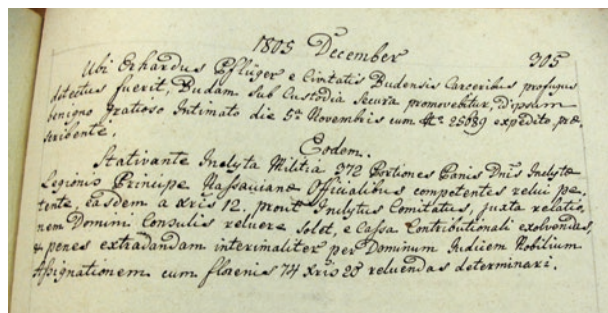 1805 December 305
Ubi Erhardus Pflüger e Civitatis Budensis Carceribus profugus
detectus fuerit, Budam sub Custodia secura promovebitur, id ipsum
benigno Gratioso Intimato die 5ª Novembris cum No 25039 expedito præ-
scribente.
Eodem.
Stativante Inclyta Militia 372 Portiones Panis Dnis Inclytæ
Legionis Principe Nassauianæ Officialibus competentes relui pe-
tente, easdem a Xris 12. prout Inclytus Comitatus, juxta relatio-
nem Domini Consulis reluere solet, e Cassa Contributionali exolvendas,
penes extradandam interimaliter per Dominum Judicem Nobilium
Assignationem cum florenis 74 Xris 28 reluendas determinari.